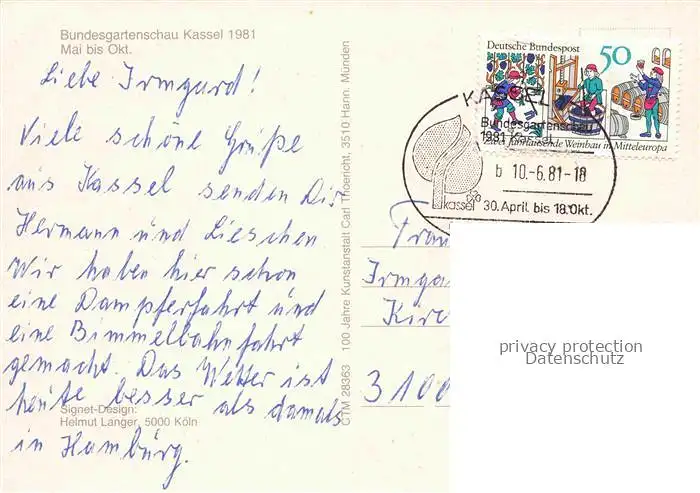 Bundesgartenschau Kassel 1981
Mai bis Okt.
Liebe Irmgard!
Viele schöne Grüße
aus Kassel senden Dir
Hermann und Lieschen.
Wir haben hier schon
eine Dampferfahrt und
eine Bimmelbahnfahrt
gemacht. Das Wetter ist
heute besser als damals
in Hamburg.
Signet-Design:
Helmut Langer, 5000 Köln
CTM 28363 100 Jahre Kunstanstalt Carl Thoericht, 3510 Hann. Münden
Deutsche Bundespost
50
Zwei Jahrtausende Weinbau in Mitteleuropa
KASSEL
Bundesgartenschau
1981 Kassel
b 10.-6.81-18
kassel
30. April bis 18. Okt.
Frau
Irmga
Kirc
3100
privacy protection
Datenschutz